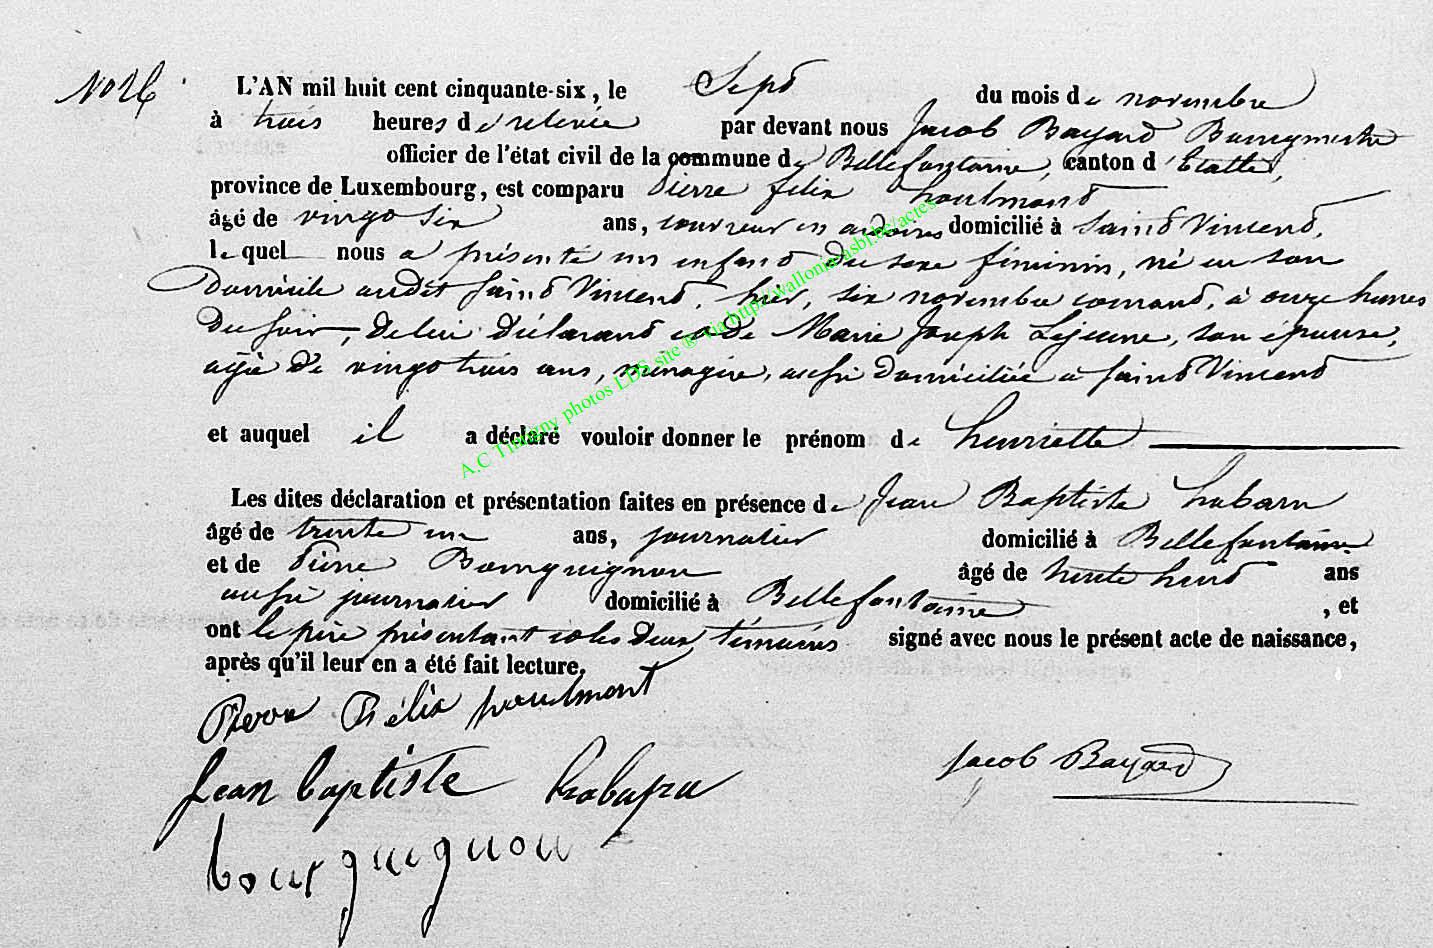 N° 26
L'AN mil huit cent cinquante-six, le Sept du mois de novembre
à trois heures de relevée par devant nous Jacob Bayard Bourgmestre
officier de l'état civil de la commune de Bellefontaine, canton d'Etalle,
province de Luxembourg, est comparu Pierre felix houlmont
âgé de vingt six ans, couvreur en ardoises domicilié à Saint Vincent,
lequel nous a présenté un enfant du sexe féminin, né en son
Domicile audit Saint Vincent, hier, six novembre courant, à onze heures
du soir, de lui Déclarant et de Marie Joseph Lejeune, son épouse,
agée de vingt trois ans, ménagère, aussi domiciliée a Saint Vincent
et auquel il a déclaré vouloir donner le prénom de henriette
Les dites déclaration et présentation faites en présence de Jean Baptiste
âgé de trente un ans, journalier domicilié à Bellefontaine
et de Pierre Bourguignon âgé de trente huit ans
aussi journalier domicilié à Bellefontaine, et
ont le père présentant et les deux témoins signé avec nous le présent acte de naissance,
après qu'il leur en a été fait lecture.
Pierre Félix houlmont
Jean baptiste
Jacob Bayard
bourguignon
A.C Tintigny photos LDS site ® via http://wallonia-asbl.be/actes